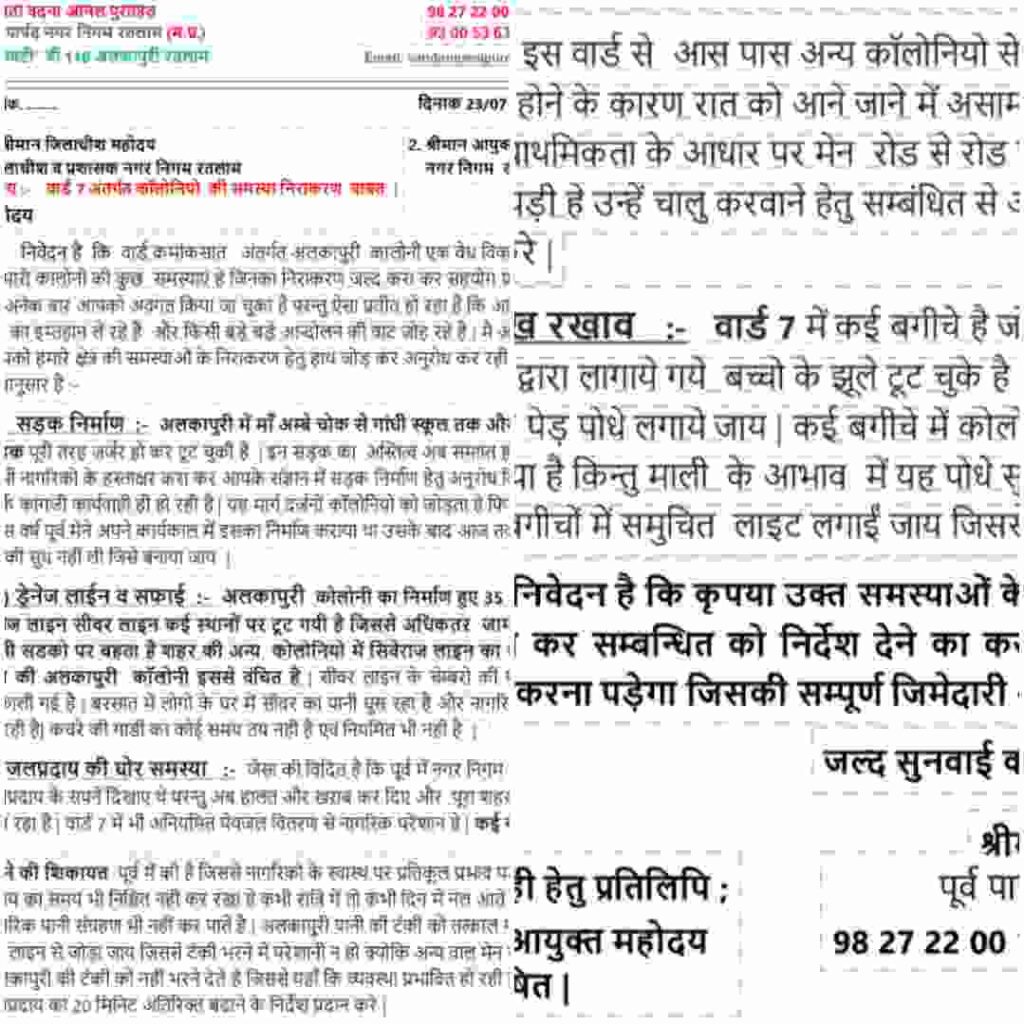 पार्षद नगर निगम रतलाम (म.प्र.)
98 27 22 00
अलकापुरी रतलाम
Email:
दिनाक 23/07
श्रीमान जिलाधीश महोदय
2. श्रीमान आयुक्
लाधीश व प्रशासक नगर निगम रतलाम
नगर निगम
वार्ड 7 अंतर्गत कॉलोनियो की समस्या निराकरण बाबत |
ोदय
निवेदन है कि वार्ड कमांकसात अंतर्गत अलकापुरी कालोनी एक वेध
कालोनी की कुछ समस्याएं हे जिनका निराकरण जल्द करा कर सहयोग
अनेक बार आपको अवगत किया जा चुका है परन्तु ऐसा प्रतीत हो रहा है कि
का इम्तहान ले रहे है और किसी बड़े बड़े आन्दोलन की वाट जोह रहे है | मै
हमारे क्षेत्र की समस्याओं के निराकरण हेतु हाथ जोड़ कर अनुरोध कर रही
ानुसार है :-
सड़क निर्माण :- अलकापुरी में माँ अम्बे चोक से गांधी स्कूल तक और
पूरी तरह जर्जर हो कर टूट चुकी है | इन सड़क का अस्तित्व अब समाप्त
नागरिको के हस्ताक्षर करा कर आपके संज्ञान में सड़क निर्माण हेतु अनुरोध
कागजी कार्यवाही ही हो रही है | यह मार्ग दर्जनों कॉलोनियों को जोड़ता हे
वर्ष पूर्व मेने अपने कार्यकाल में इसका निर्माण कराया था उसके बाद आज
की सुध नहीं ली जिसे बनाया जाय |
) ड्रेनेज लाईन व सफाई :- अलकापुरी कोलोनी का निर्माण हुए 35
ज लाइन सीवर लाइन कई स्थानों पर टूट गयी है जिससे अधिकतर जाम
सडको पर बहता है शहर की अन्य, कोलोनियो में सिवेराज लाइन का
की अलकापुरी कॉलोनी इससे वंचित है | सीवर लाइन के चेम्बरो की
गई है | बरसात में लोगो के घर में सीवर का पानी घुस रहा है और
रही है| कचरे की गाडी का कोई समय तय नही है एवं नियमित भी नही है |
जलप्रदाय की घोर समस्या :- जेसा की विदित है कि पूर्व में नगर निगम
प्रदाय के सपने दिखाए थे परन्तु अब हालत और ख़राब कर दिए और पूरा शहर
रहा है | वार्ड 7 में भी अनियमित पेयजल वितरण से नागरिक परेशान हे | कई
ने की शिकायत पूर्व में की है जिससे नागरिको के स्वास्थ पर प्रतिकूल प्रभाव
का समय भी निश्चित नहीं कर रखा हे कभी रात्रि में तो कभी दिन में नल आते
पानी संग्रहण भी नहीं कर पाते है | अलकापुरी पानी की टंकी को तत्काल
लाइन से जोड़ा जाय जिससे टंकी भरने में परेशानी न हो क्योकि अन्य वाल मेन
कापुरी की टंकी को नहीं भरने देते है जिससे यहाँ कि व्यवस्था प्रभावित हो रही
प्रदाय का 20 मिनिट अतिरिक्त बढ़ाने के निर्देश प्रदान करे |
इस वार्ड से आस पास अन्य कॉलोनियो से
होने के कारण रात को आने जाने में असाम
ाथमिकता के आधार पर मेन रोड से रोड
पड़ी हे उन्हें चालु करवाने हेतु सम्बंधित से
रे |
ख रखाव :- वार्ड 7 में कई बगीचे है जं
द्वारा लागाये गये बच्चो के झूले टूट चुके है
पेड़ पोधे लगाये जाय | कई बगीचे में कोल
या है किन्तु माली के आभाव में यह पोधे सु
गीचों में समुचित लाइट लगाई जाय जिसस
निवेदन है कि कृपया उक्त समस्याओं के
कर सम्बन्धित को निर्देश देने का क
करना पड़ेगा जिसकी सम्पूर्ण जिमेदारी
जल्द सुनवाई व
श्रीम
पूर्व पा
ही हेतु प्रतिलिपि ;
आयुक्त महोदय
98 27 22 00
षित |